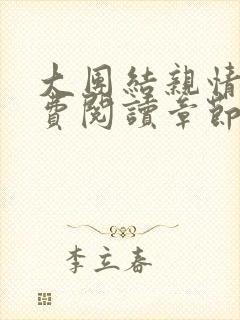 大團結親情
費閱讀章節
李立春